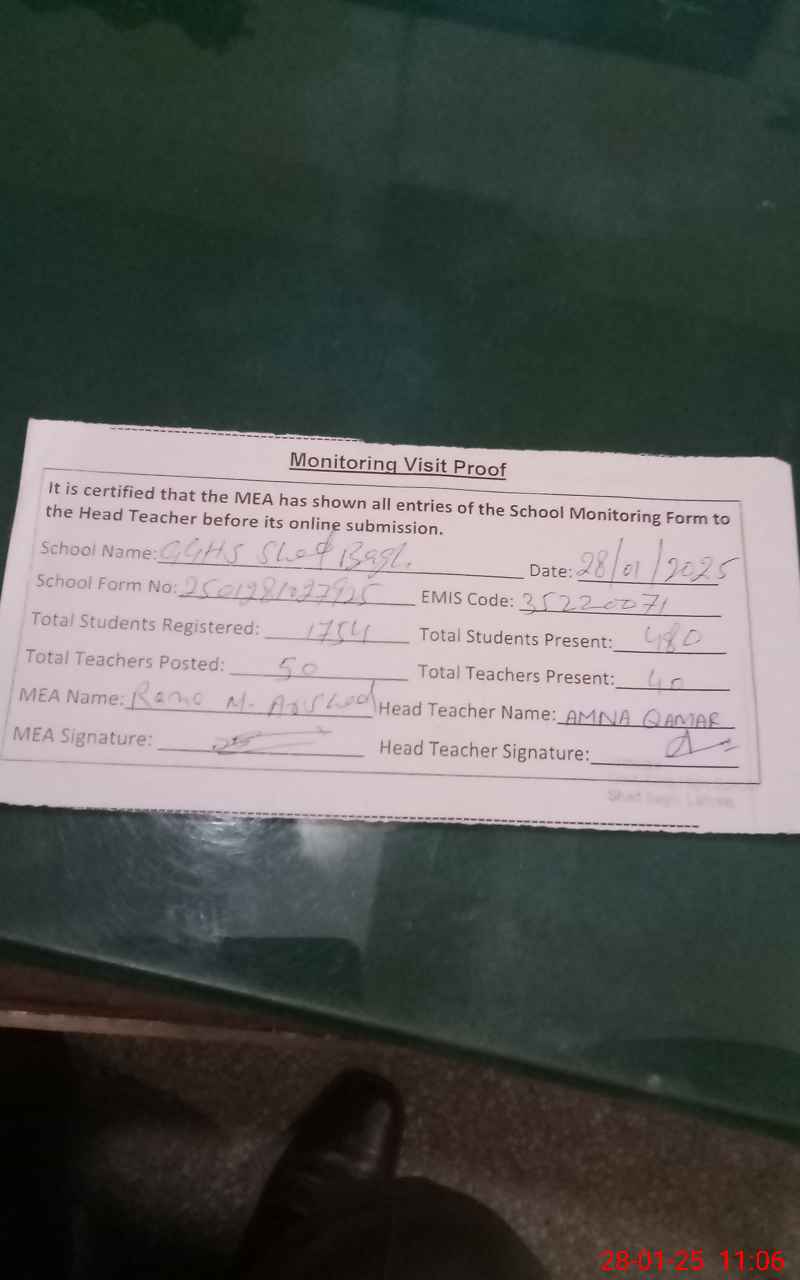 Monitoring Visit Proof
It is certified that the MEA has shown all entries of the School Monitoring Form to
the Head Teacher before its online submission.
School Name: GGHS Shad Bagh. Date: 28/01/2025
School Form No: EMIS Code: 35220071
Total Students Registered: 1754 Total Students Present: 480
Total Teachers Posted: 50 Total Teachers Present: 40
MEA Name: Rana M. Arshad Head Teacher Name: AMNA QAMAR
MEA Signature: Head Teacher Signature:
Shad Bagh Lahore
28-01-25 11:06